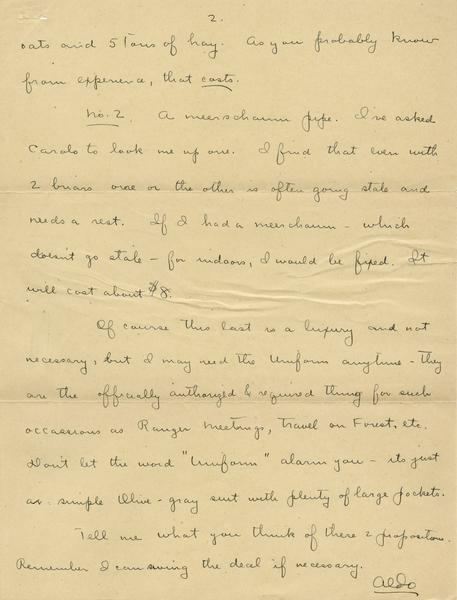 2.
oats and 5 Tons of hay. As you probably know
from experience, that costs.
No. 2. A meerschaum pipe. I've asked
Carolo to look me up one. I find that even with
2 briars one or the other is often going stale and
needs a rest. If I had a meerschaum - which
doesn't go stale - for indoors, I would be fixed. It
will cost about $8.
Of course this last is a luxury and not
necessary, but I may need the Uniform anytime - they
are the officially authorized & required thing for such
occassions as Ranger Meetings, travel on Forest, etc.
Don't let the word "Uniform" alarm you - its just
a simple Olive-gray suit with plenty of large pockets.
Tell me what you think of these 2 propositions.
Remember I can swing the deal if necessary.
Aldo